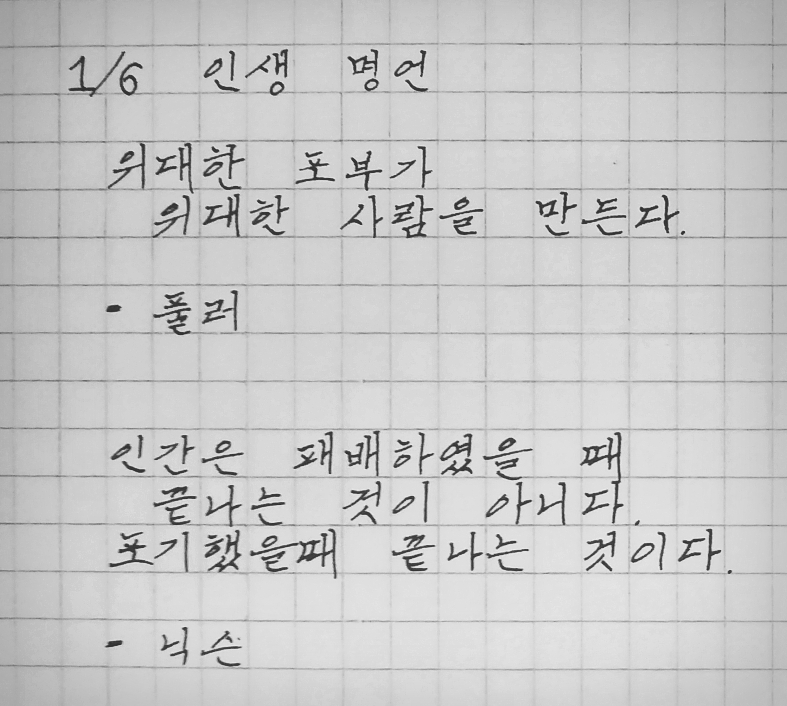 1/6 인생 명언
위대한 포부가
위대한 사람을 만든다.
- 풀러
인간은 패배하였을 때
끝나는 것이 아니다.
포기했을때 끝나는 것이다.
- 닉슨